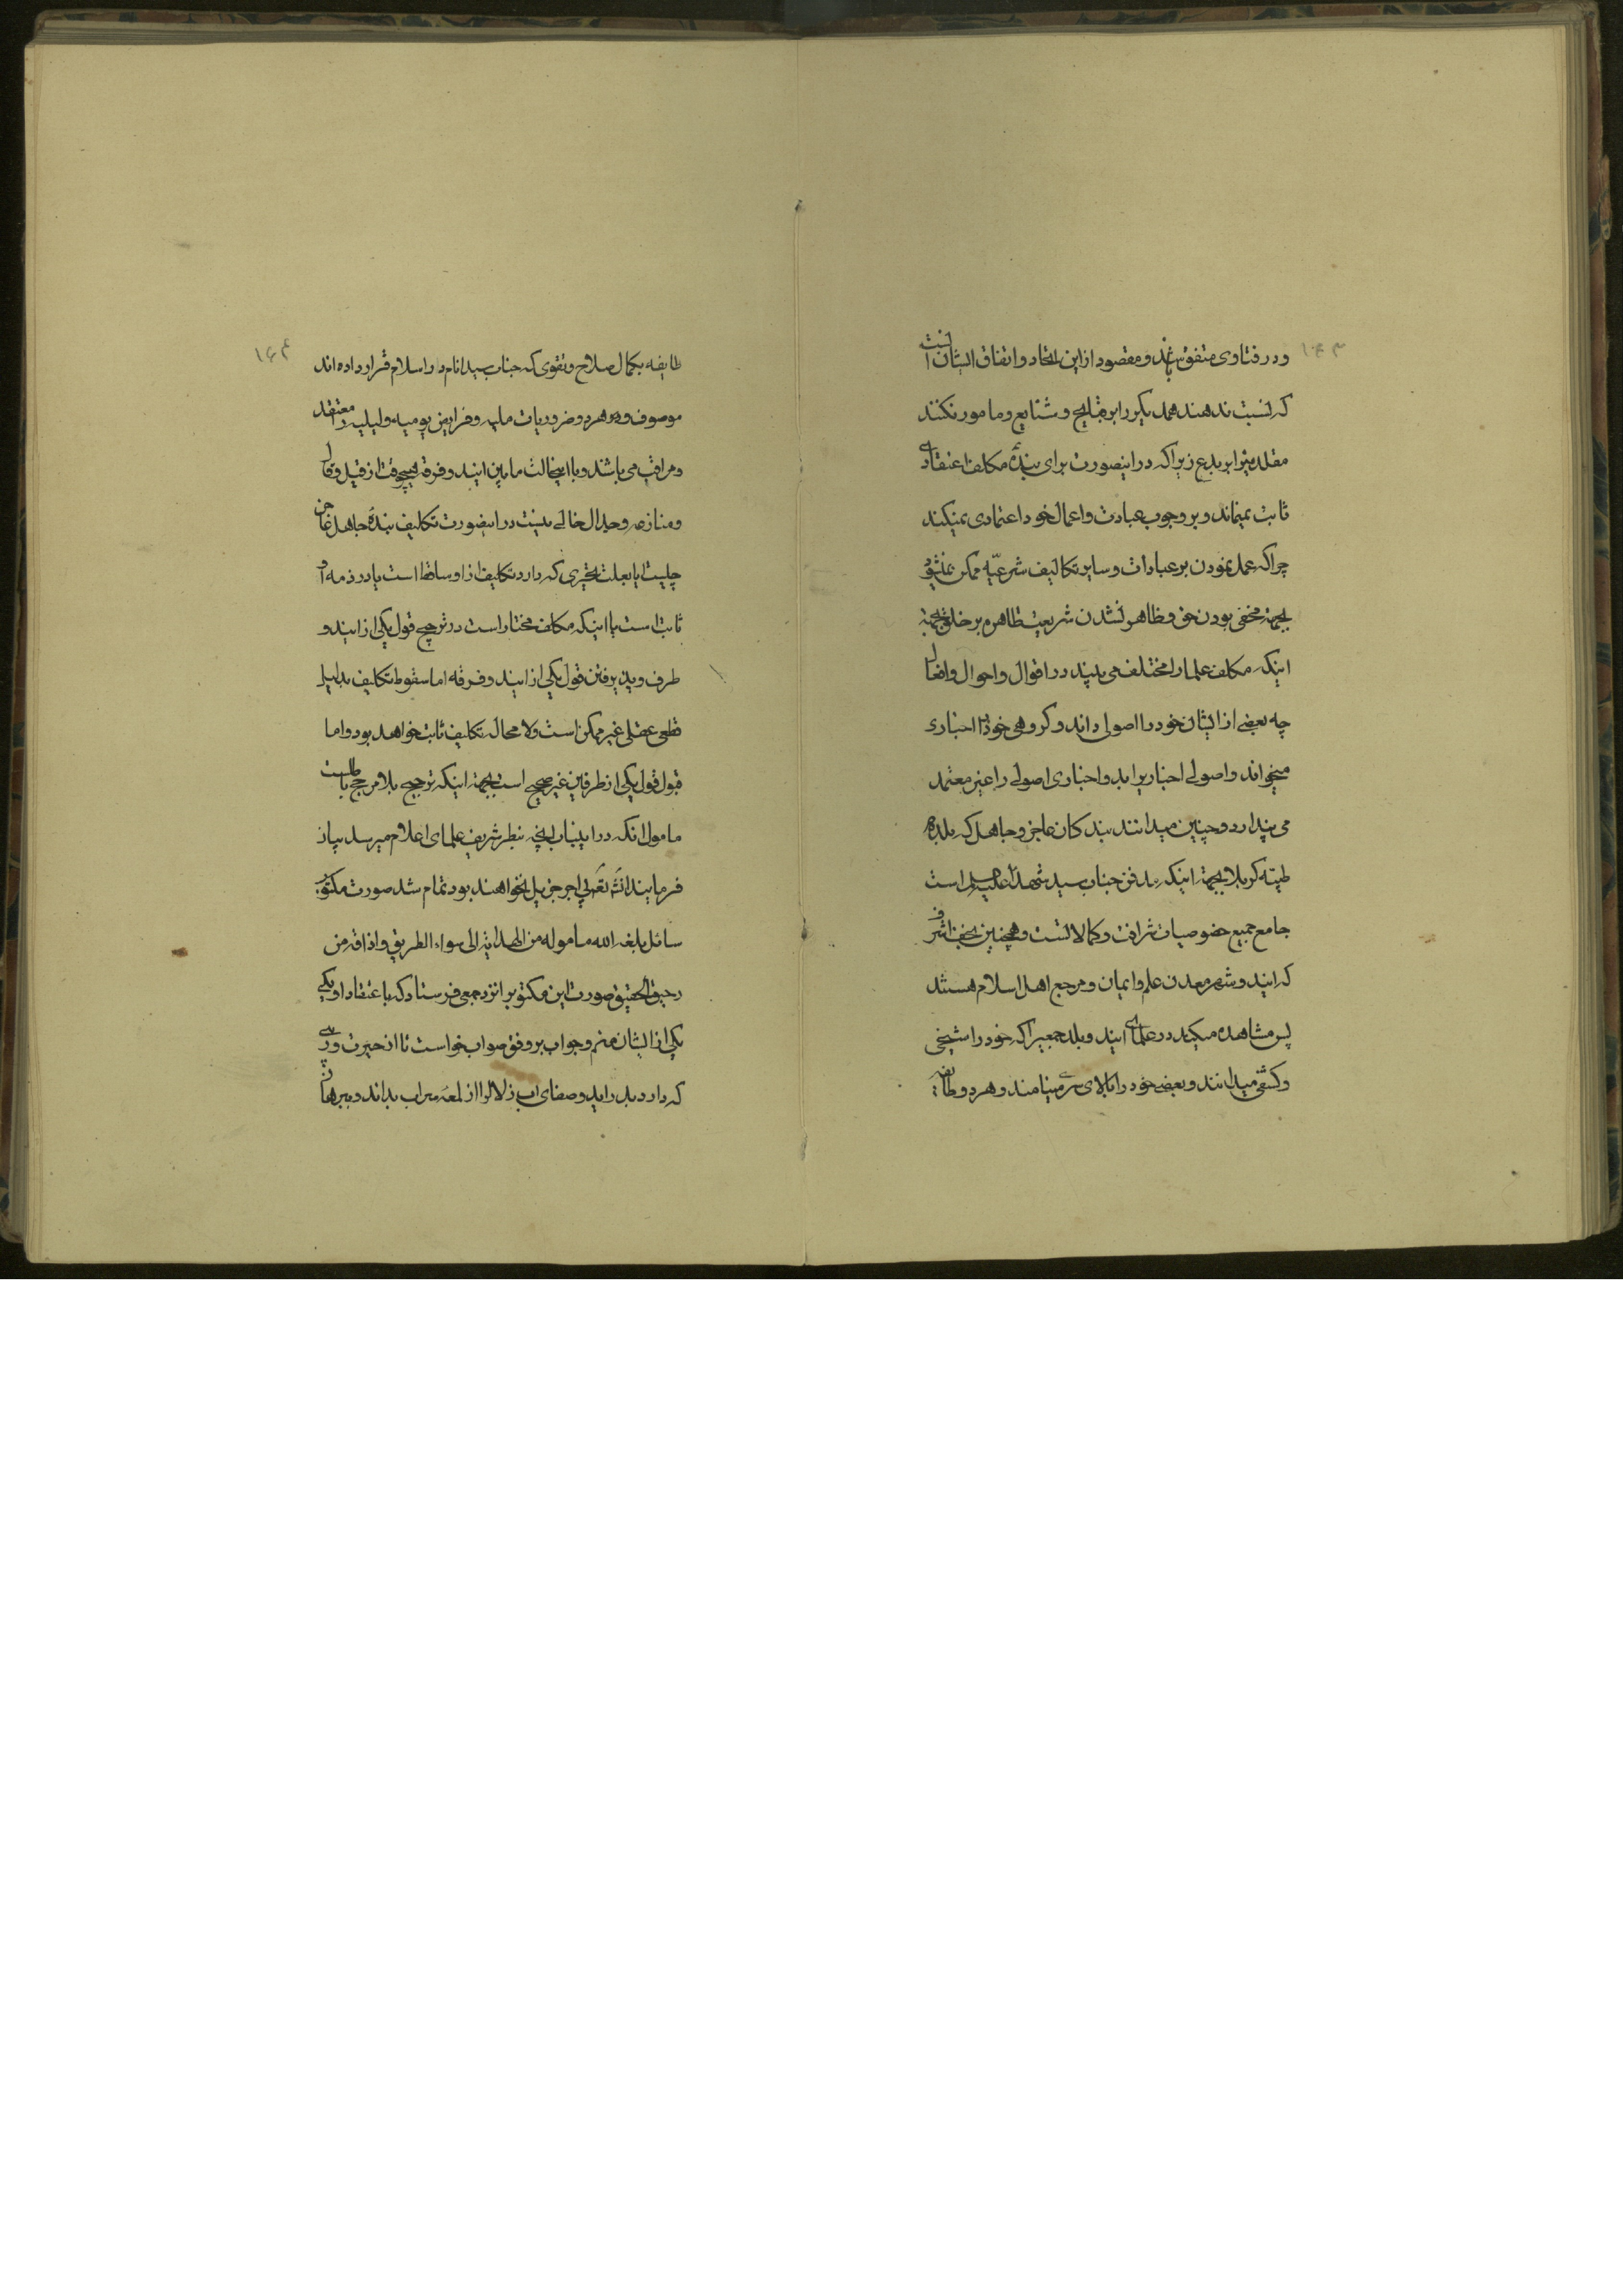 ۱۶۳
و در فتاوی متفق باشند و مقصود از این اتحاد و اتفاق ایشان آنست
که نسبت ندهند همدیگر را بر قبایح و شنایع و مامور نکنند
مقلدین را بر بدع زیرا که در اینصورت برای بندهٔ مکلف اعتقادی
ثابت نمیماند و بر وجوب عبادت و اعمال خود اعتمادی نمیکند
چرا که عمل نمودن بر عبادات و سایر تکالیف شرعیّه ممکن نمیشود
بجهة مخفی بودن حق و ظاهر نشدن شریعت طاهره بر خلق بجهة
اینکه مکلف علما را مختلف می بیند در اقوال و احوال و افعال
چه بعضی از ایشان خود را اصولی داند و کروهی خود را اخباری
میخواند و اصولی اخباریرا بد و اخباری اصولی را غیر معتمد
می پندارد و چنین میدانند بندکان عاجز و جاهل که بلدهٔ
طیبّه کربلا بجهة اینکه مدفن جناب سید شهدا علیه السلام است
جامع جمیع خصوصیات شرافت و کمالاتست و همچنین نجف اشرف
که ایندو شهر معدن علم و ایمان و مرجع اهل اسلام هستند
پس مشاهده میکند در علمای ایندو بلد جمعیرا که خود را شیخی
و کشفی میدانند و بعضی خود را بالای سری مینامند و هر دو طایفه
۱۶۴
طایفه بکمال صلاح و تقوی که جناب سید انام در اسلام قرار داده اند
موصوف و بر هر دو ضروریات ملیه و فرایض یومیه و لیلیه را معتقد
و مراقب می باشند و با اینحالت مابین ایندو فرقه هیچوقت از قیل و قال
و منازعه و جدال خالی نیست در اینصورت تکلیف بندهٔ جاهل عاجز
چیست ایا بعلت تحیری که دارد تکلیف از او ساقط است یا در ذمه او
ثابت است با اینکه مکلف مختار است در ترجیح قول یکی از ایندو
طرف و پذیرفتن قول یکی از ایندو فرقه اما سقوط تکالیف بدلیل
قطعی عقلی غیر ممکن است و لا محاله تکلیف ثابت خواهد بود و اما
قبول قول یکی از طرفین غیر صحیح است بجهة اینکه ترجیح بلا مرجح باطلست
مامول انکه در اینباب انچه بنظر شریف علمای اعلام میرسد بیان
فرمایند انشاء الله تعالی اجر جزیل خواهند بود تمام شد صورت مکتوب
سائل بلغه الله مأموله من الهدایة الی سواء الطریق و اذاقه من
رحیق التحقیق صورت این مکتوبرا نزد جمعی فرستاد که باعتقاد او یکی
یکی از ایشان منم و جواب بر وفق صواب خواست تا از حیرت و
که دارد بدر اید و صفای اب زلال را از لمعه سراب بداند و ببرهان